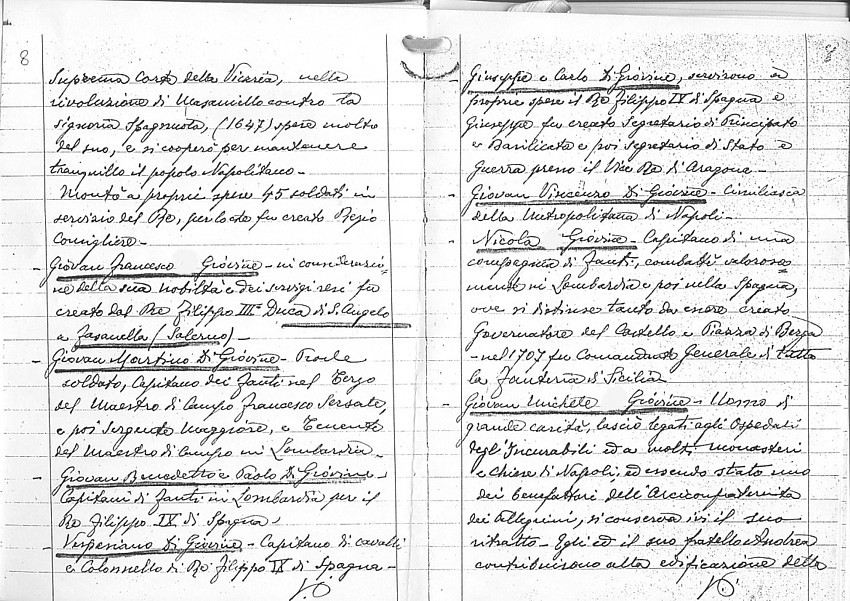 8
Suprema Corte della Vicaria, nella
rivoluzione di Masaniello contro la
signoria Spagnuola, (1647) spese molto
del suo, e si cooperò per mantenere
tranquillo il popolo Napolitano -
Montò a proprie spese 45 soldati in
servizio del Re, per lo che fu creato Regio
Consigliere -
Giovan Francesco Giovine - in considerazio=
ne della sua nobiltà e dei servigi resi fu
creato dal Re Filippo III° Duca di S. Angelo
a Fasanella (Salerno) -
- Giovan Martino Di Giovine - Prode
soldato, Capitano dei Fanti nel Terzo
del Maestro di Campo Francesco Sersale,
e poi Sergente Maggiore, e Tenente
del Maestro di Campo in Lombardia -
- Giovan Benedetto e Paolo Di Giovine -
Capitani di Fanti in Lombardia per il
Re Filippo IV di Spagna -
- Vespesiano Di Giovine - Capitano di cavalli
e Colonnello di Re Filippo IV di Spagna -
8
- Giuseppe e Carlo Di Giovine, servirono a
proprie spese il Re Filippo IV di Spagna e
Giuseppe fu creato Segretario di Principato
e Basilicata e poi Segretario di Stato e
Guerra presso il Vice Re di Aragona -
- Giovan Vincenzo Di Giovine - Cimiliarca
della Metropolitana di Napoli -
- Nicola Giovine - Capitano di una
compagnia di Fanti, combattè valorosa=
mente in Lombardia e poi nella Spagna,
ove si distinse tanto da essere creato
Governatore del Castello e Piazza di Berga
- nel 1707 fu Comandante Generale di tutta
la Fanteria di Sicilia
- Giovan Michele Giovine - Uomo di
grande carità, lasciò legati agli Ospedali
degl'Incurabili ed a molti monasteri
e Chiese di Napoli, ed essendo stato uno
dei benefattori dell'Arciconfraternita
dei Pellegrini, si conserva ivi il suo
ritratto - Egli ed il suo fratello Andrea
contribuirono alla edificazione della